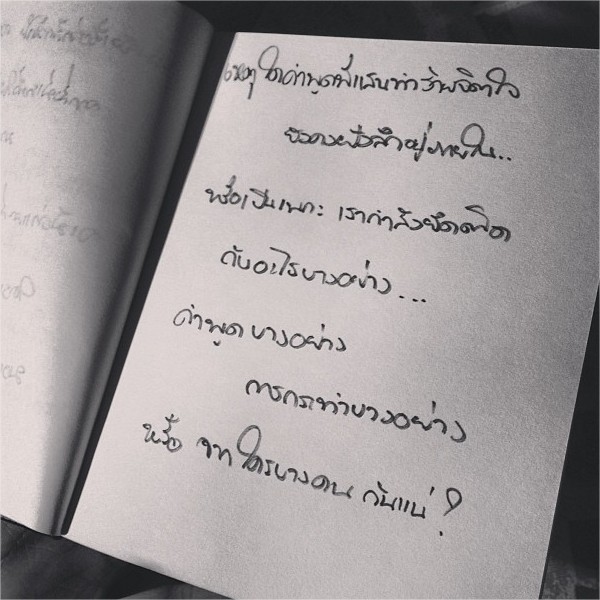 เหตุใดคำพูดที่แสนทำร้ายจิตใจ
ยังคงฝังลึกอยู่ภายใน..
หรือเป็นเพราะ เรากำลังยึดติด
กับอะไรบางอย่าง...
คำพูดบางอย่าง
การกระทำบางอย่าง
หรือ จากใครบางคน กันแน่ ?